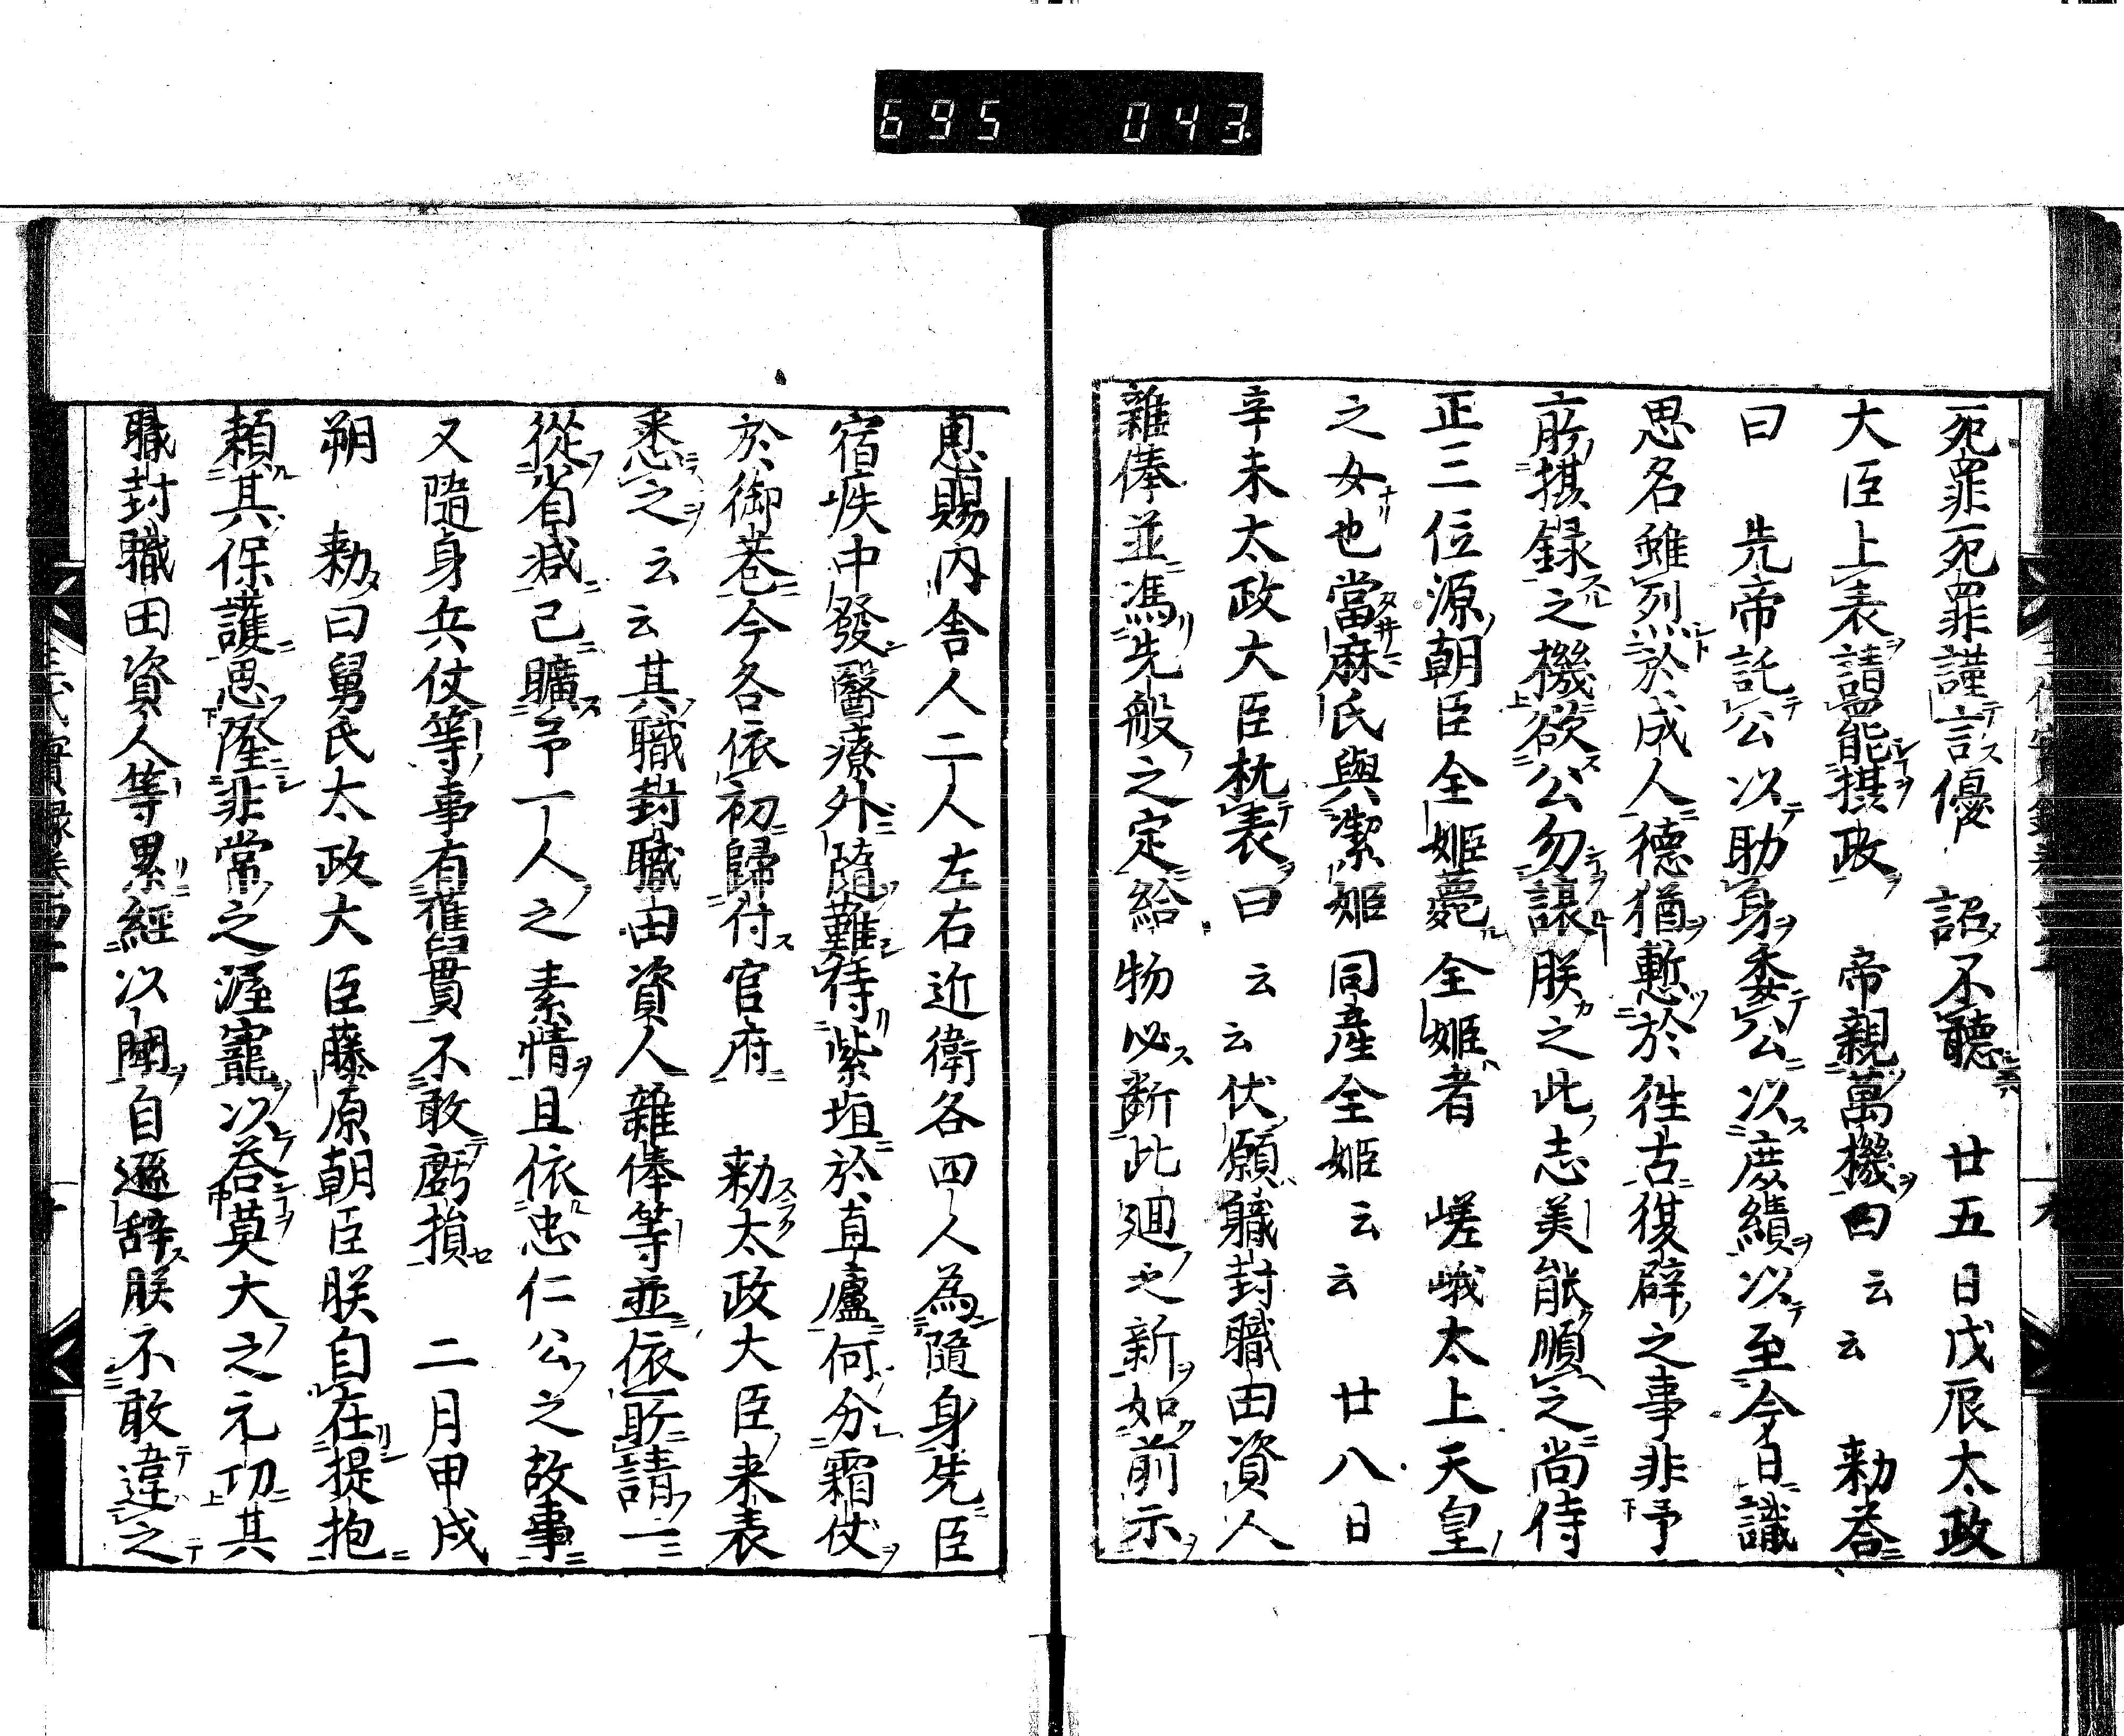 695 043
死罪死罪謹言優 詔不聽 廿五日戊辰太政
大臣上表請罷能摂政 帝親萬機曰云云 勅答
曰 先帝託公以助身委公以庶績以至今日識
思名雖列於成人德猶慙於徃古復辟之事非予
所摂録之機欲公勿讓朕之此志美能順之尚侍
正三位源朝臣全姫薨全姫者 嵯峨太上天皇
之女也當麻氏與潔姫同産全姫云云 廿八日
辛未太政大臣抗表曰 云云伏願職封職田資人
雜俸並馮先般之定給物必断此廻之新如前示
恩賜内舎人二人左右近衛各四人為隨身先臣
宿疾中發醫療外隨難待紫垣於直廬何分霜仗
於御巷今各依初歸付官府 勅太政大臣来表
悉之云云其職封職田資人雜俸等並依所請一
從省减已曠予一人之素情且依忠仁公之故事
又隨身兵仗等事有舊貫不敢虧損 二月甲戌
朔 勅曰舅氏太政大臣藤原朝臣朕自在提抱
頼其保護思隆非常之渥寵以荅莫大之元功其
職封職田資人等累經以聞自遜辞朕不敢違之